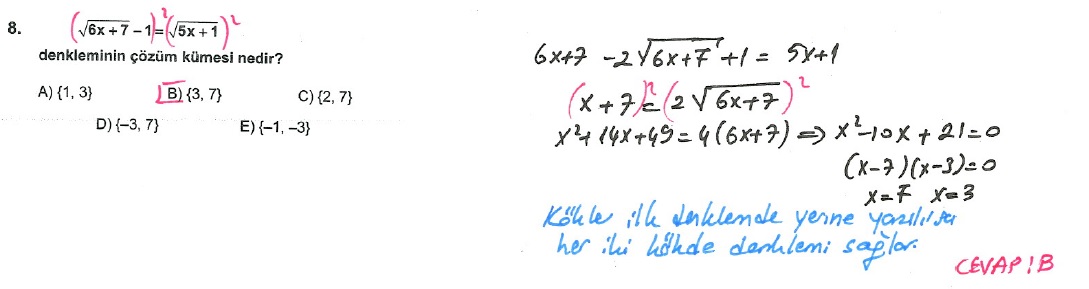 8. (√6x + 7 – 1)²=(√5x + 1)²
denkleminin çözüm kümesi nedir?
A) {1, 3} B) {3, 7} C) {2, 7}
D) {–3, 7} E) {–1, –3}
6x+7 -2√6x+7 +1 = 5x+1
(x+7)²=(2√6x+7)²
x²+14x+49=4(6x+7) ⇒ x²-10x+21=0
(x-7)(x-3)=0
x=7 x=3
Kökle ilk denklemde yerine yazılırsa
her iki kökde denklemi sağlar.
CEVAP: B